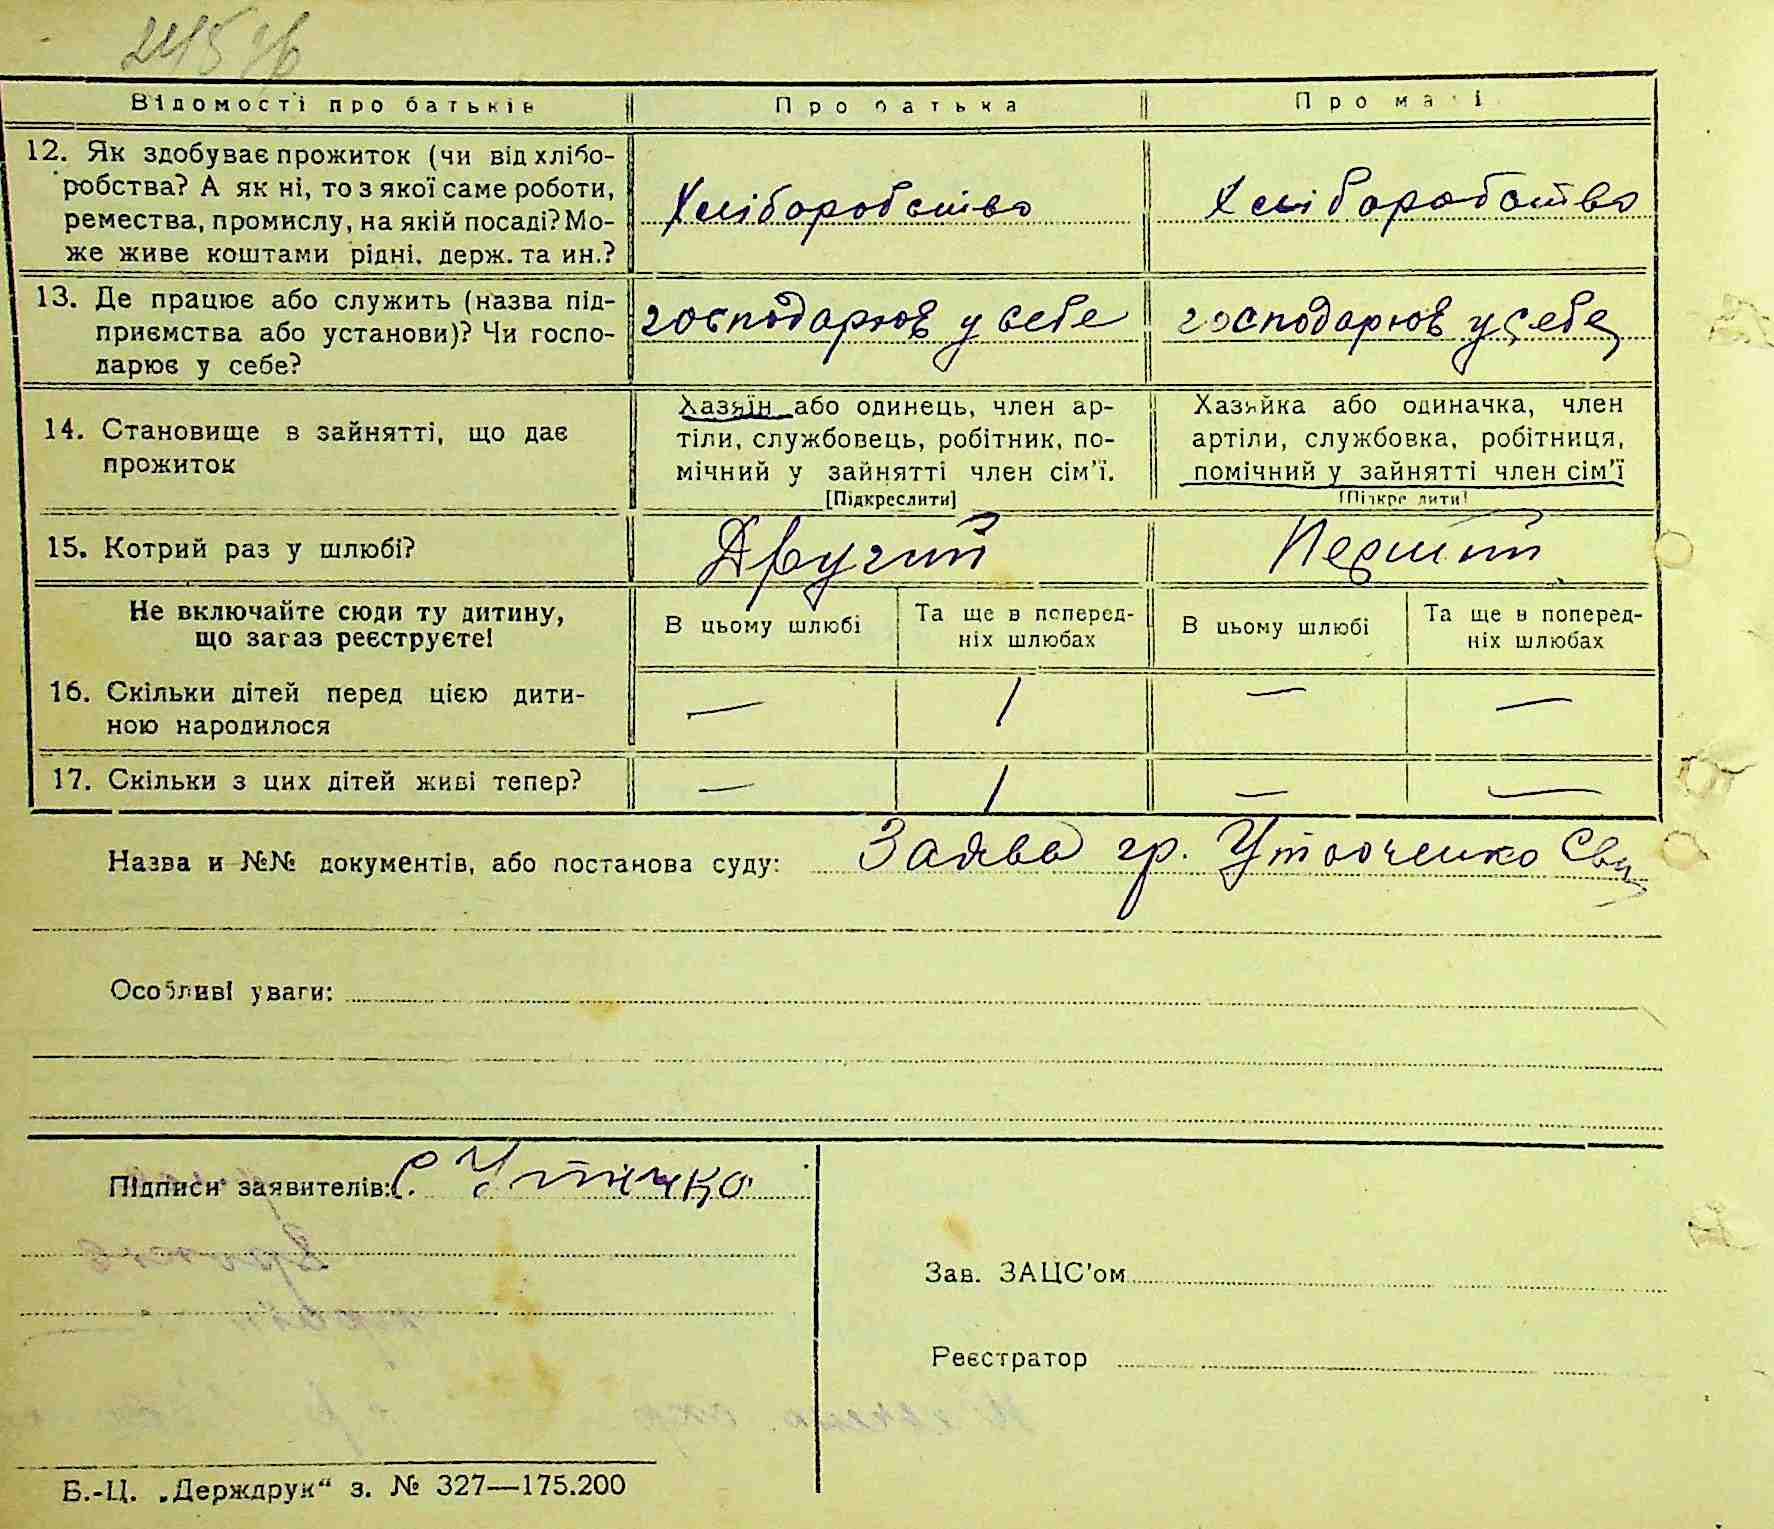 Відомості про батьків Про батька Про маті
12. Як здобуває прожиток (чи від хлібо-
робства? А як ні, то з якої саме роботи,
ремества, промислу, на якій посаді? Мо-
же живе коштами рідні, держ. та ин.?
Хліборобство Хліборобство
13. Де працює або служить (назва під-
приємства або установи)? Чи госпо-
дарює у себе?
господарюв у себе господарюв у себе
14. Становище в зайнятті, що дає
прожиток
Хазяїн або одинець, член ар-
тіли, службовець, робітник, по-
мічний у зайнятті член сім'ї.
[Підкреслити]
Хазяйка або одиначка, член
артіли, службовка, робітниця,
помічний у зайнятті член сім'ї
[Підкреслити]
15. Котрий раз у шлюбі? Другий Перший
Не включайте сюди ту дитину,
що зараз реєструєте!
В цьому шлюбі
Та ще в поперед-
ніх шлюбах
В цьому шлюбі
Та ще в поперед-
ніх шлюбах
16. Скільки дітей перед цією дити-
ною народилося
— 1 — —
17. Скільки з цих дітей живі тепер? — 1 — —
Назва и №№ документів, або постанова суду: Заява гр.
Особливі уваги:
Підписи заявителів: С.
Зав. ЗАЦС'ом
Реєстратор
Б.-Ц. „Держдрук“ з. № 327—175.200